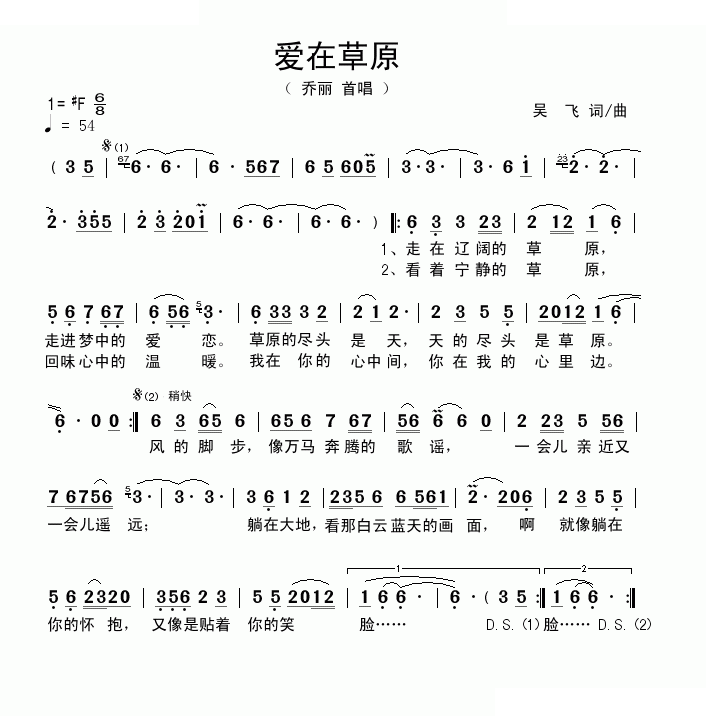 爱在草原
（ 乔丽 首唱 ）
1= #F 6/8
吴 飞 词/曲
♩ = 54
𝄋(1)
( 3 5 | 67 6· 6· | 6 · 567 | 6 5 605 | 3·3· | 3· 6 1 | 23 2· 2· |
2· 355 | 2 3 201 | 6· 6· | 6· 6· ) ‖: 6 3 3 23 | 2 12 1 6 |
1、走在辽阔的 草 原，
2、看着宁静的 草 原，
5 6 7 67 | 6 56 5 3· | 6 33 3 2 | 2 1 2· | 2 3 5 5 | 2012 1 6 |
走进梦中的 爱 恋。 草原的尽头 是 天， 天的尽头 是草原。
回味心中的 温 暖。 我在 你的 心中间， 你在我的 心里边。
𝄋(2) 稍快
6 · 0 0 :‖ 6 3 65 6 | 656 7 67 | 56 6 6 0 | 2 23 5 56 |
风的脚步， 像万马奔腾的 歌谣， 一会儿亲近又
7 6756 5 3· | 3· 3· | 3 6 1 2 | 2356 6 561 | 2· 206 | 2 3 5 5 |
一会儿遥 远； 躺在大地，看那白云蓝天的画 面， 啊 就像躺在
1 2
5 6 2320 | 356 2 3 | 5 5 2012 | 1 6 6· | 6 · ( 3 5 :‖ 1 6 6· :‖
你的怀 抱， 又像是贴着 你的笑 脸…… D.S. (1) 脸…… D.S. (2)